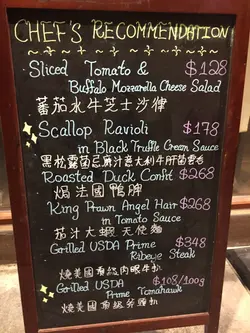 CHEF'S RECOMMENDATION
Sliced Tomato & $128
Buffalo Mozzarella Cheese Salad
蕃茄水牛芝士沙律
Scallop Ravioli $178
in Black Truffle Cream Sauce
黑松露
意大利
Roasted Duck Confit $268
焗法國鴨髀
King Prawn Angel Hair $268
in Tomato Sauce
茄汁大蝦天使麵
Grilled USDA Prime $348
Ribeye Steak
燒美國頂級肉眼牛扒
Grilled USDA $108/100g
Prime Tomahawk
燒美國頂級斧頭扒